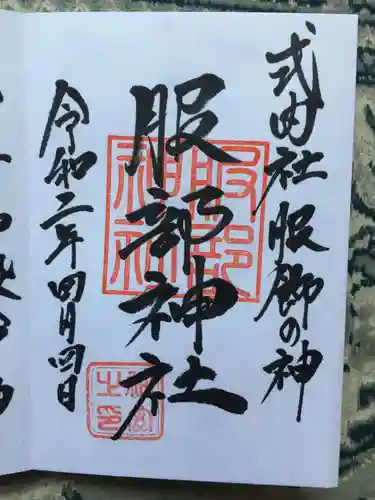 式内社 服飾の神
服部神社
令和二年四月四日
服部
神社